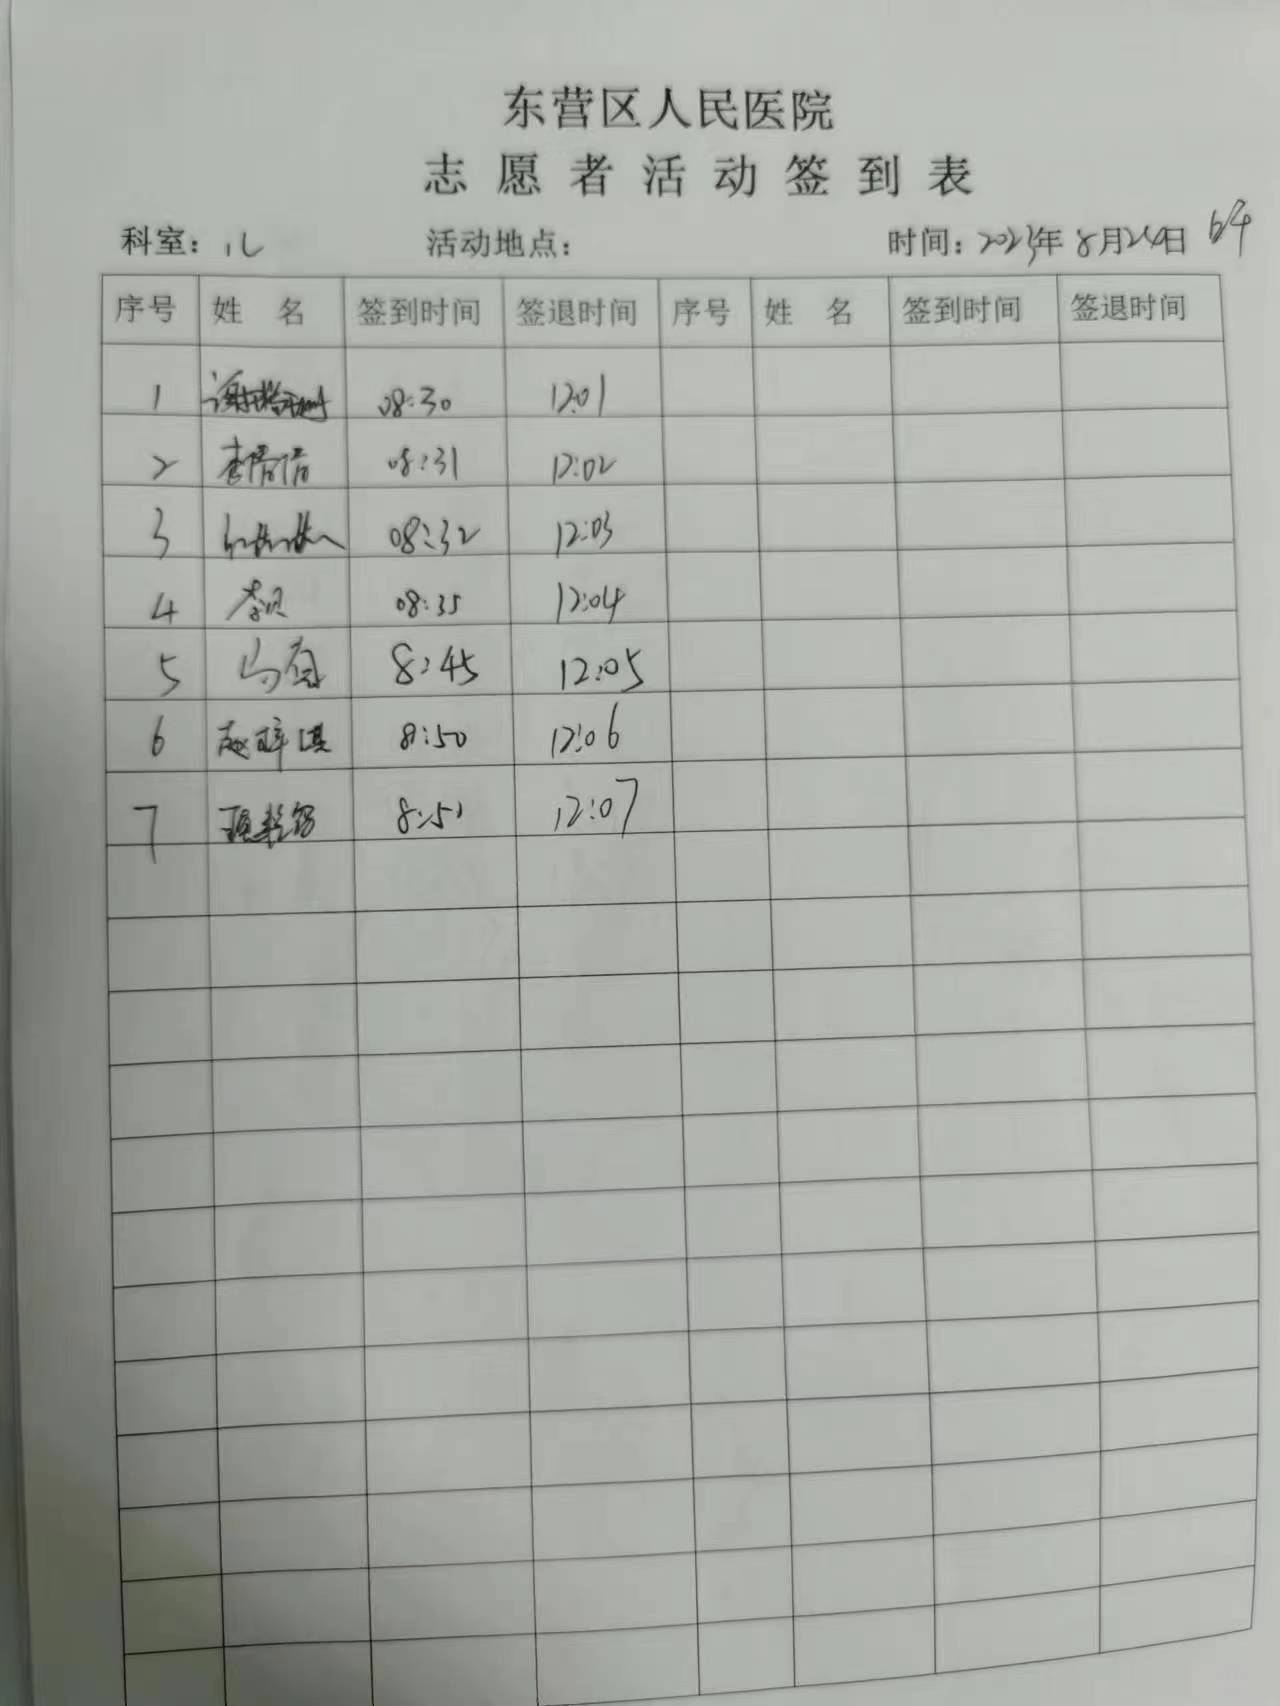 东营区人民医院
志愿者活动签到表
科室：儿 活动地点： 时间：2023年8月26日
序号 姓 名 签到时间 签退时间 序号 姓 名 签到时间 签退时间
1 08:30 12:01
2 李倩倩 08:31 12:02
3 08:32 12:03
4 08:35 12:04
5 8:45 12:05
6 赵梓淇 8:50 12:06
7 8:51 12:07